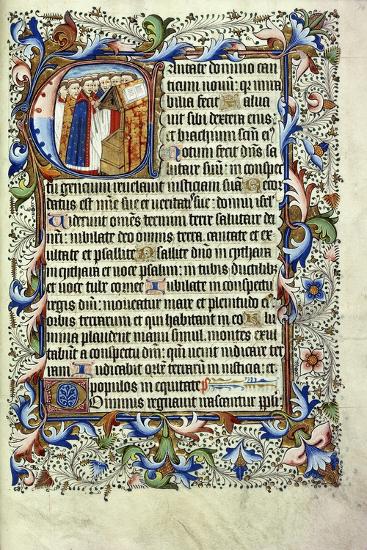 Cantate domino can
ticum novum: q̃r mira
bilia fecit Salua
uit sibi dextera eius:
et brachium sc̃m ei᷒
Notum fecit dñs sa
lutare suũ: in conspec
tu gencium reuelauit iusticiam suã Recor
datus est mĩe sue et veritat᷒ sue: domui isr̃l
Uiderunt omẽs termini terre salutare dei
nr̃i: iubilate deo omnis terra cantate et ex
ultate et psallite Psallite dño in cythara
in cythara et uoce psalmi: in tubis ductilib᷒
et uoce tube cornee Iubilate in conspectu
regis dñi: moueatur mare et plenitudo ei᷒
orbis terrarum et qui habitant in eo Flu
mina plaudent manu simul montes exul
tabũt a conspectu dñi: qm̃ uenit iudicare terr̃
Iudicabit orbẽ terrarũ in iusticia: et
populos in equitate
Dominus regnauit irascantur ppl̃i: